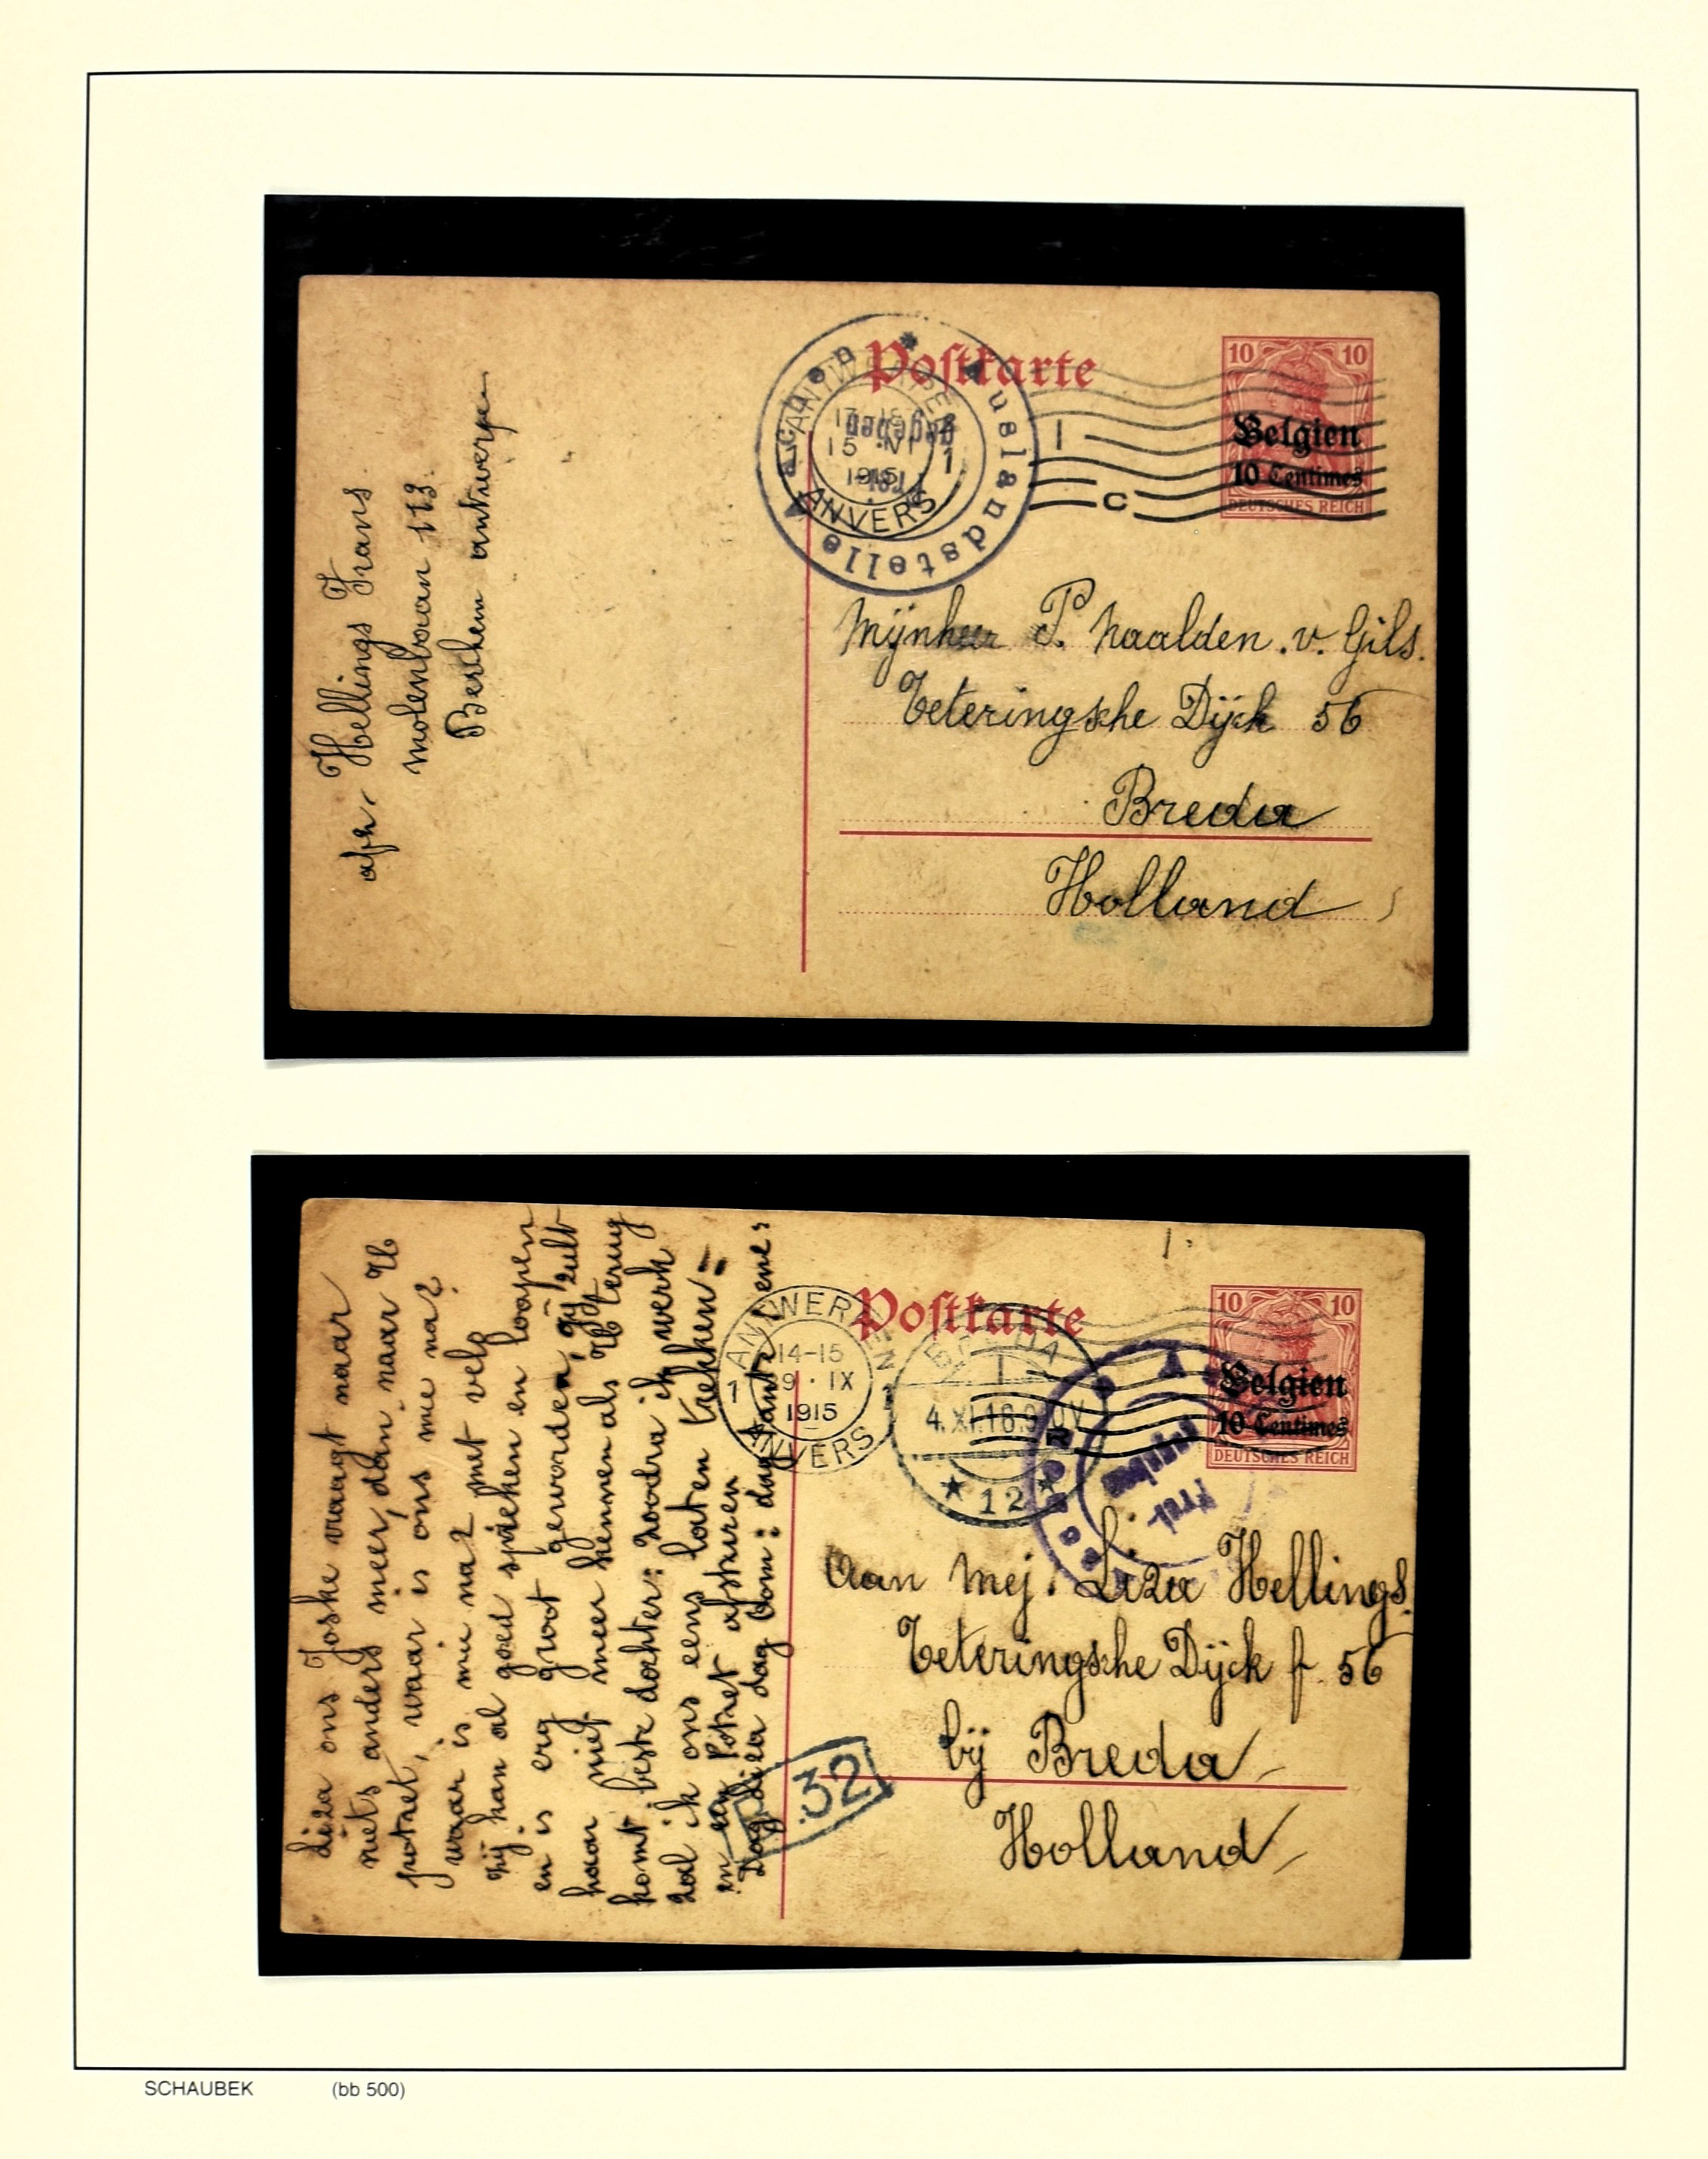 Postkarte
10 10
Belgien
10 Centimes
DEUTSCHES REICH
Auslandstelle Aachen
Frei-
gegeben
ANTWERPEN
15 XI
1915
ANVERS
1
C
afz. Hellings Frans
molenbaan 113.
Berchem antwerpen
Mijnheer P. Naalden. v. Gils.
Teteringsche Dijck 56
Breda
Holland
Postkarte
10 10
Belgien
10 Centimes
DEUTSCHES REICH
ANTWERPEN
14-15
9 · IX
1915
1 1
ANVERS
BREDA
4.XI.16.
12
Frei-
gegeben
.32
Liza ons Joske vraagt naar
niets anders meer, dan naar U
potret, waar is ons mie na?
waar is mie na? met velp
zij kan al goed spreken en loopen
en is erg groot geworden, gij zult
haar niet meer kennen als U terug
komt beste dochter: Zoodra ik werk
zal ik ons eens laten trekken =
en een Potret afsturen
Dag Liza dag Oom: dag tante ene:
aan mej. Liza Hellings.
Teteringsche Dijck f 56
bij Breda
Holland
SCHAUBEK (bb 500)